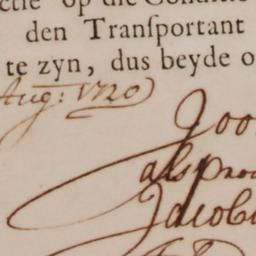 ctie op die Conditie
den Tranſportant
te zyn, dus beyde o
Aug: 1720
Joo
als pro
Jacob